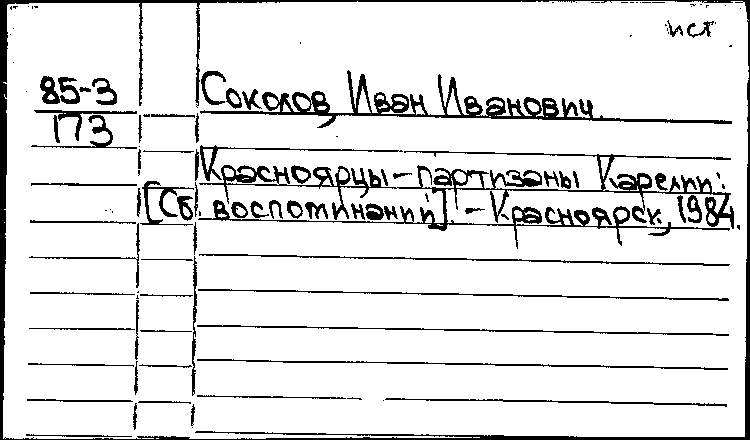 ист
85-3
173
Соколов, Иван Иванович.
Красноярцы – партизаны Карелии:
[Сб. воспоминаний]. – Красноярск, 1984.